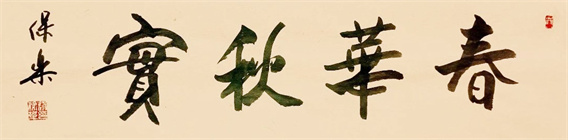 春華秋實
保樂